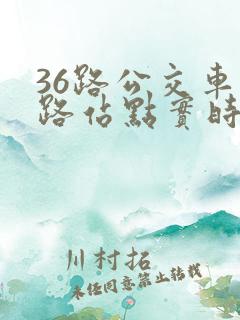 36路公交車
路佔點實時
川村拓
未任同意禁止转载